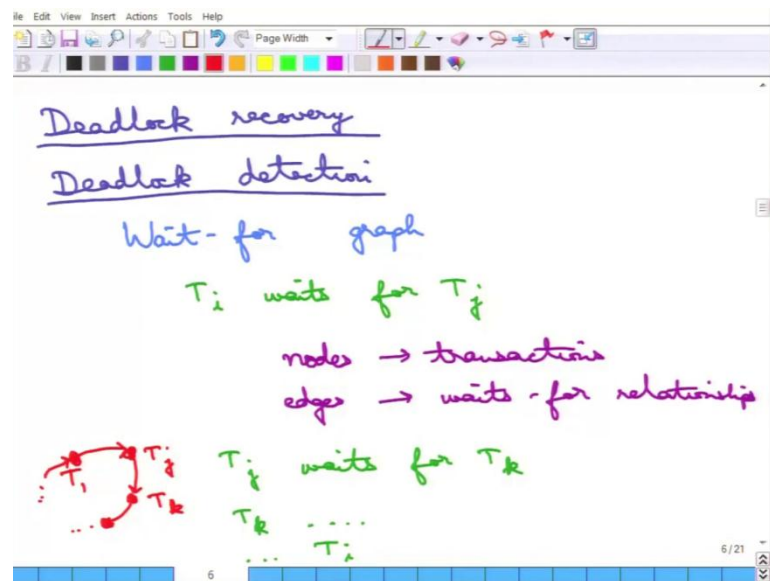 ile Edit View Insert Actions Tools Help
Page Width
B I
Deadlock recovery
Deadlock detection
Wait-for graph
Ti waits for Tj
nodes → transactions
edges → waits-for relationships
Tj waits for Tk
Tk ....
... Ti
T1
Tj
Tk
:
...
6/21
6